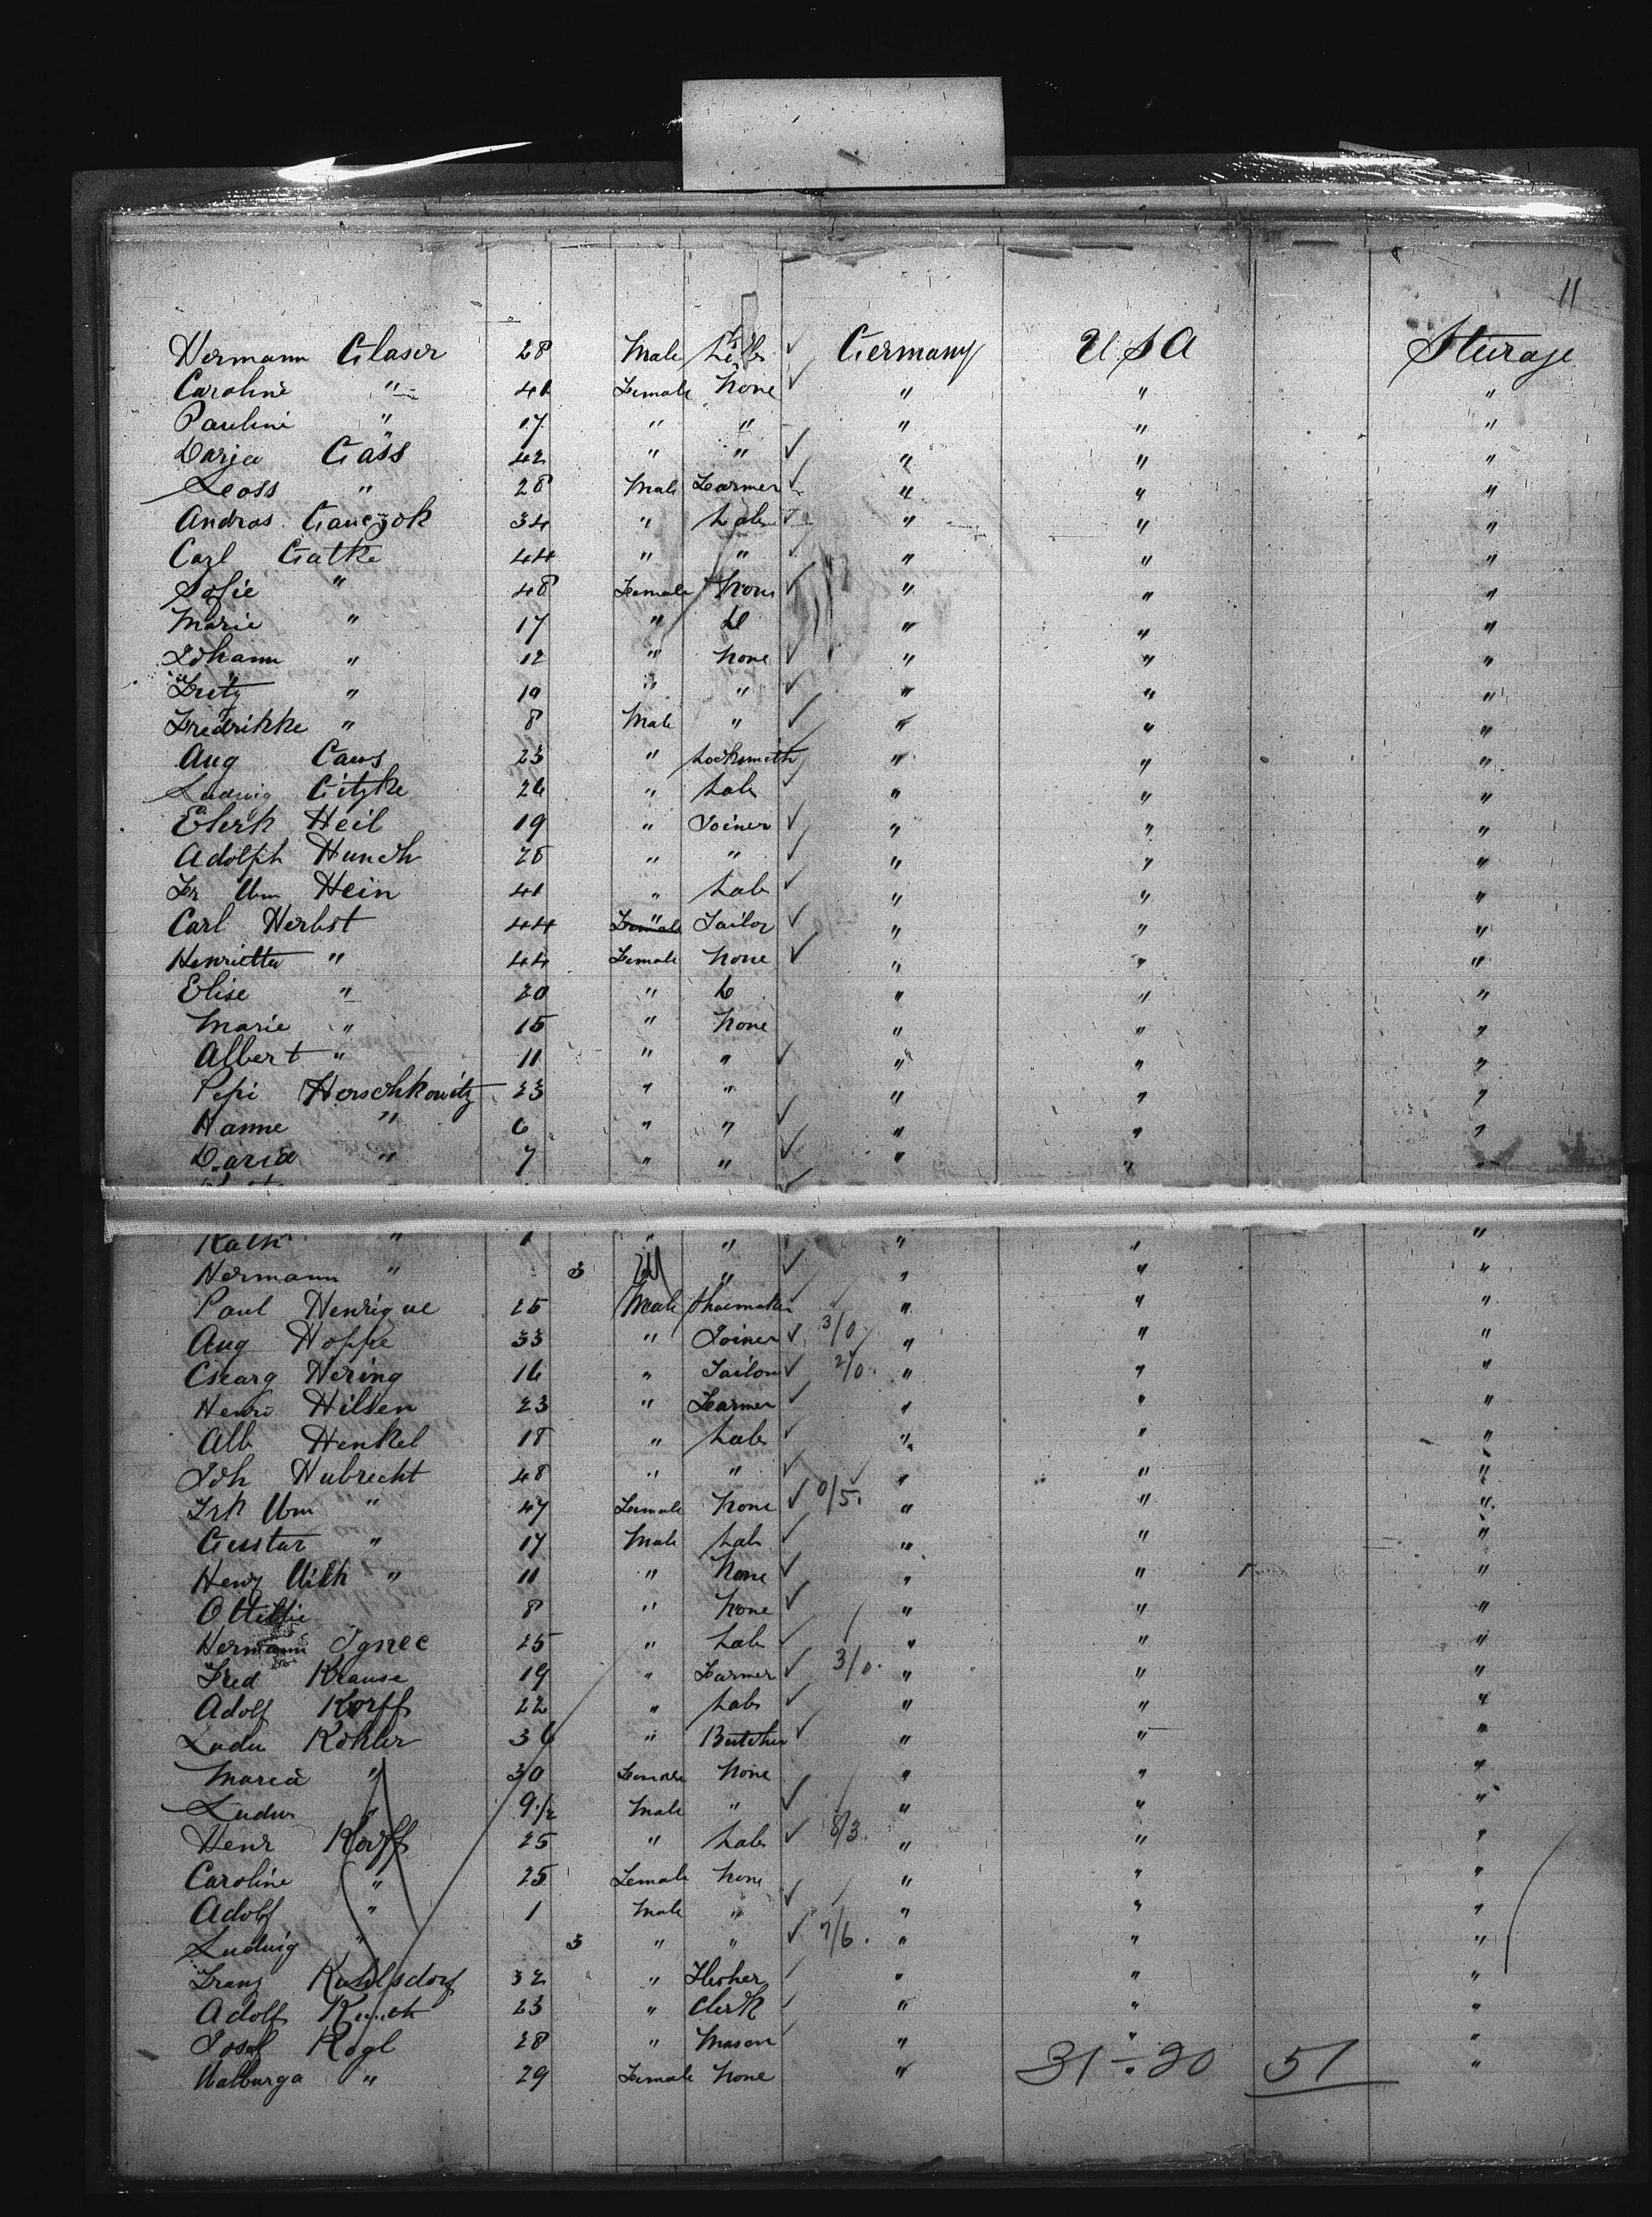 11
Hermann Glaser 28 Male Lab ✓ Germany USA Steurage
Caroline " 41 Female None ✓ " " "
Pauline " 17 " " " " "
Darja Gass 42 " " ✓ " " "
Leoss " 28 Male Farmer ✓ " " "
Andras Ganczok 34 " Lab ✓ " " "
Carl Gatke 44 " " ✓ " " "
Sofie " 48 Female None ✓ " " "
Marie " 17 " " " "
Johann " 12 " None ✓ " " "
Fritz " 10 " " ✓ " " "
Fredrikke " 8 Male " ✓ " " "
Aug Caws 23 " Locksmith " " "
Ludwig Gitzke 26 " Lab ✓ " " "
Elerk Heil 19 " Joiner ✓ " " "
Adolph Hundh 28 " " ✓ " " "
Fr Wm Hein 41 " Lab ✓ " " "
Carl Herbst 44 " Tailor ✓ " " "
Henrietta " 44 Female None ✓ " " "
Elise " 20 " " " "
Marie " 15 " None " " "
Albert " 11 " " ✓ " " "
Pepi Herschkowitz 23 " " " " "
Hanne " 6 " " ✓ " " "
Daria " 7 " " ✓ " " "
Kath " 1 " " " " "
Hermann " 3 " ✓ " " "
Paul Henrique 25 Male Shoemaker ✓ " " "
Aug Hoppe 33 " Joiner ✓ 3/0 " " "
Georg Hering 16 " Tailor ✓ 2/0 " " "
Henri Hilsen 23 " Farmer ✓ " " "
Alb Henkel 18 " Lab ✓ " " "
Joh Hubrecht 48 " " ✓ " " "
Frk Wm " 47 Female None ✓ 0/5 " " "
Gustav " 17 Male Lab ✓ " " "
Henry Wilh " 11 " None ✓ " " "
Ottillie 8 " None ✓ " " "
Hermann Ignec 25 " Lab ✓ " " "
Fred Krause 19 " Farmer ✓ 3/0 " " "
Adolf Korff 22 " Lab ✓ " " "
Ludw Kohler 36 " Butcher ✓ " " "
Maria " 30 Female None " " "
Ludw " 9 1/2 Male " ✓ " " "
Henr Korff 25 " Lab ✓ 8/3 " " "
Caroline " 25 Female None " " "
Adolf " 1 Male " ✓ " " "
Ludwig " 3 " " ✓ 7/6 " " "
Franz Kuhlsdorf 32 " ✓ " " "
Adolf 23 " Clerk ✓ " " "
Josef Kogl 28 " Mason ✓ " " "
Walburga " 29 Female None " " "
31 - 20 51